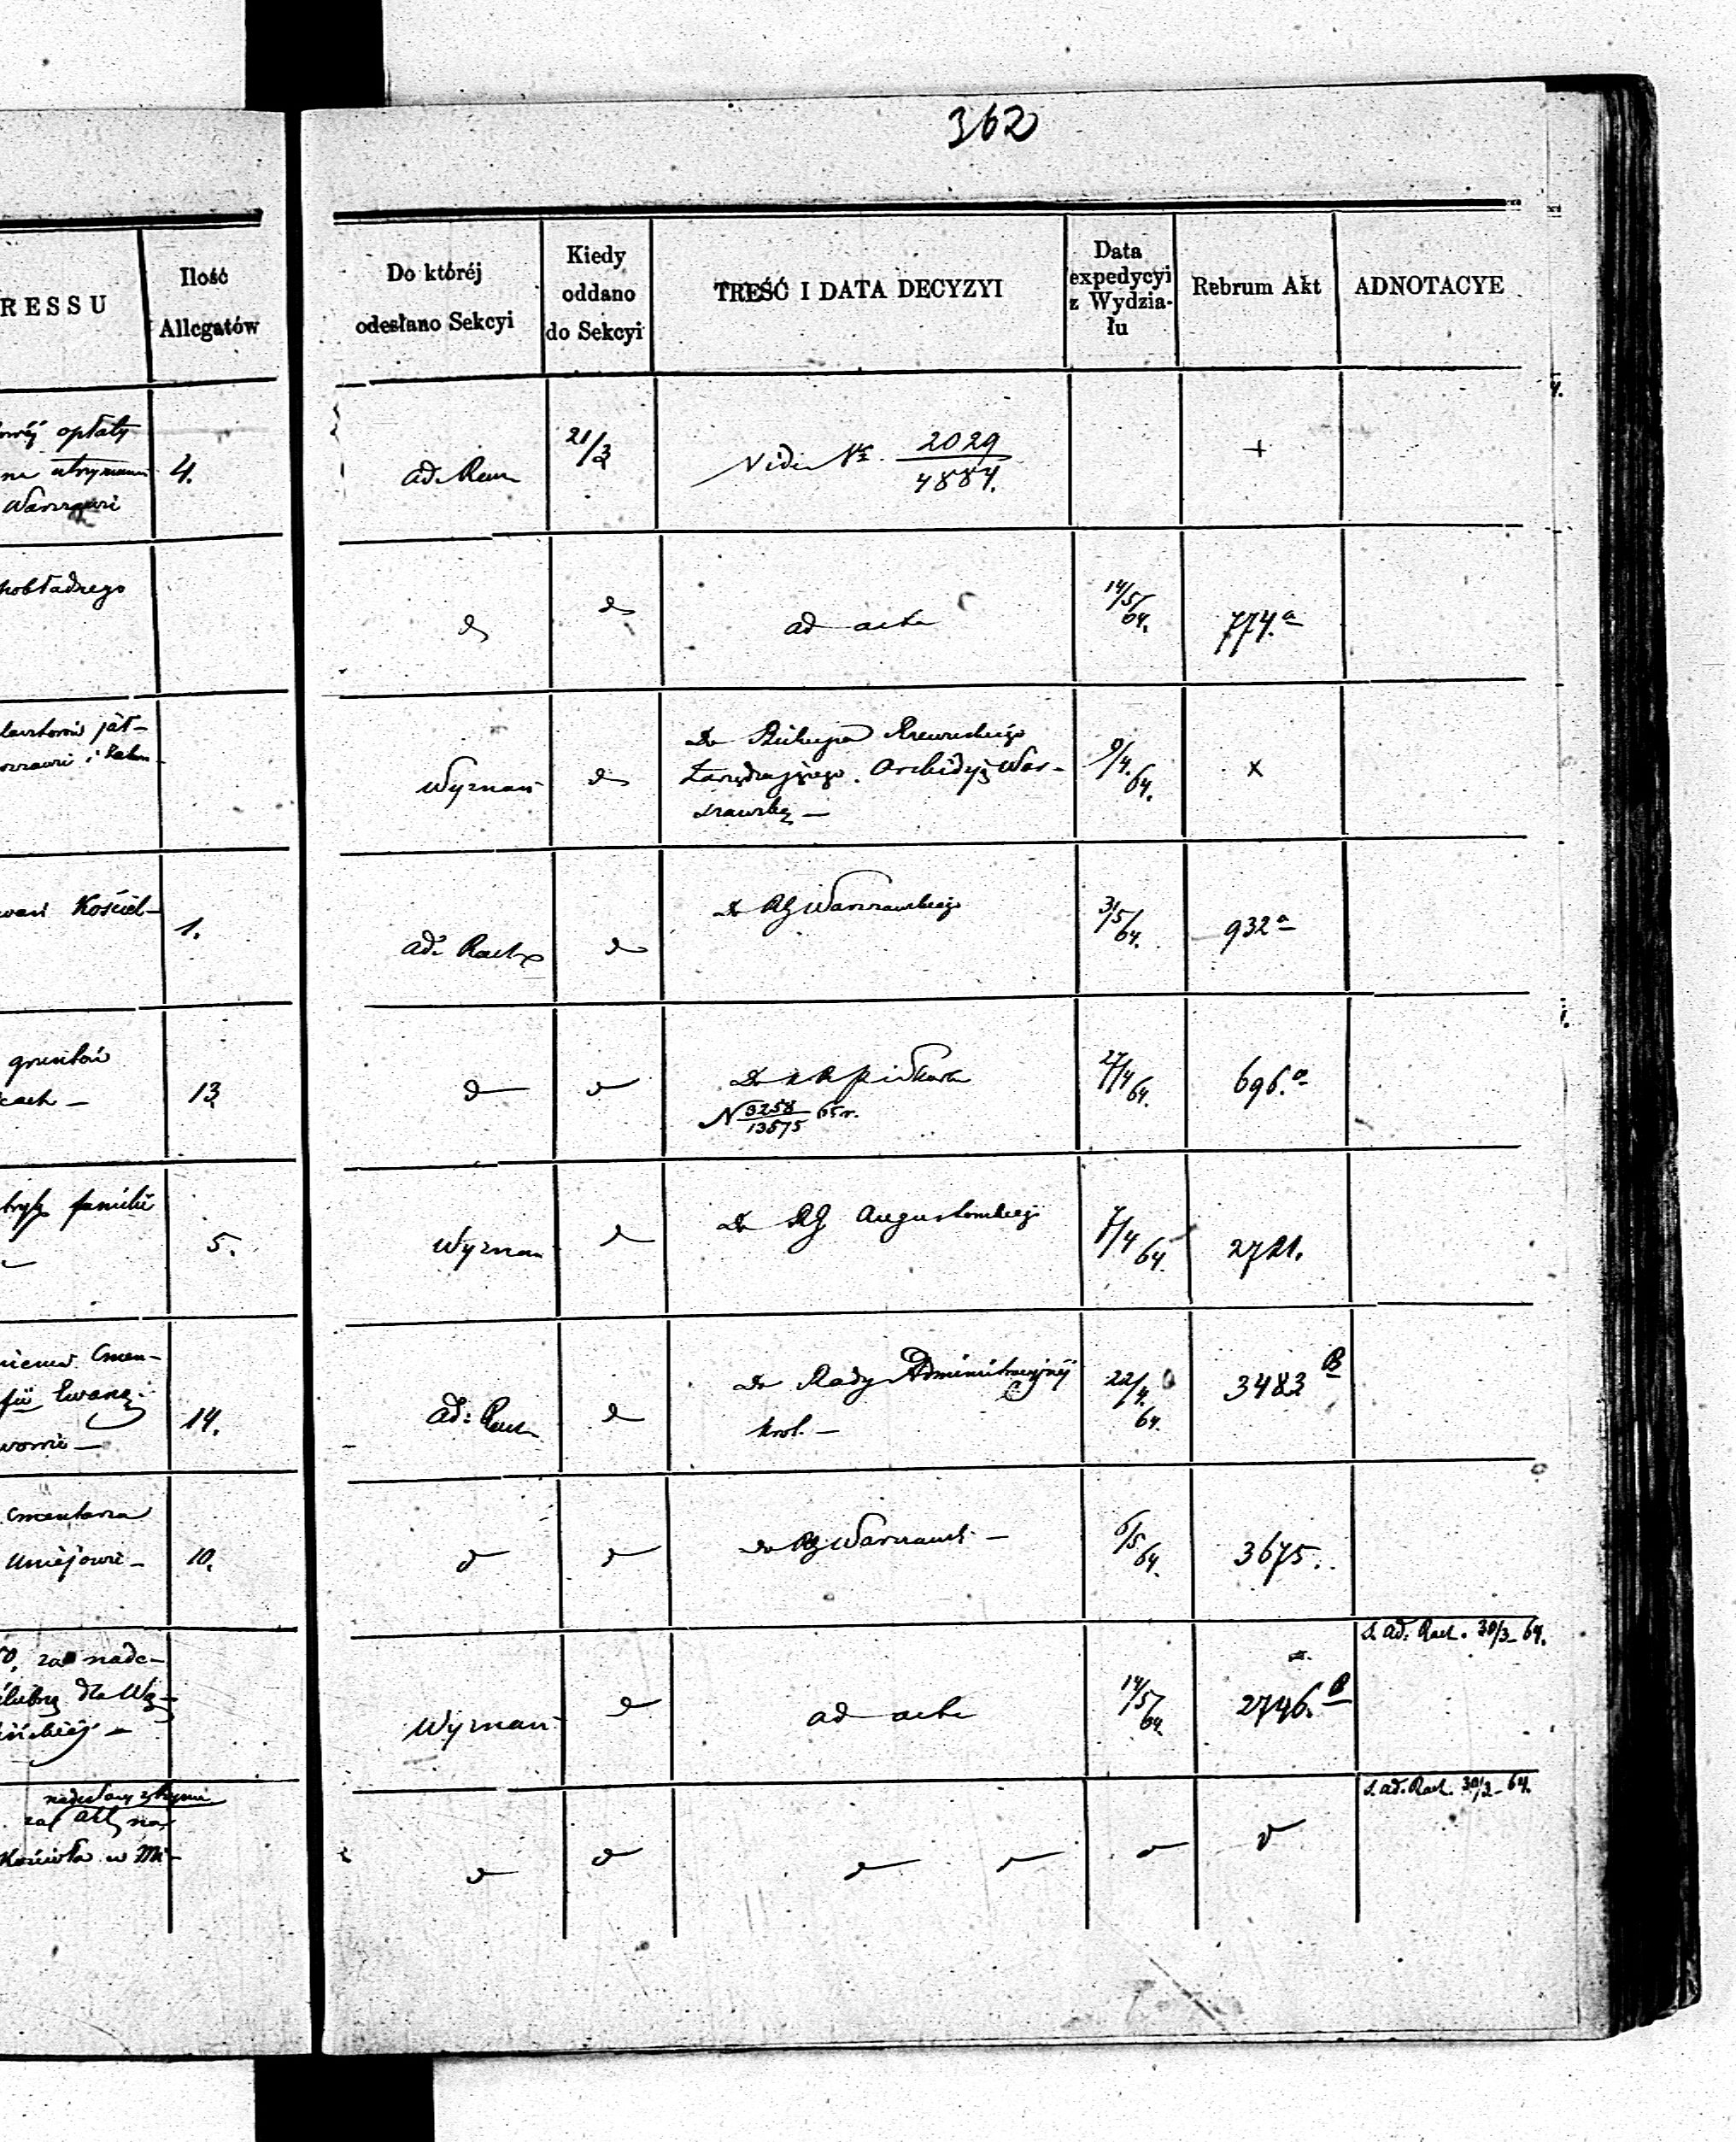 362
RESSU
Ilość
Allegatów
Do któréj
odesłano Sekcyi
Kiedy
oddano
do Sekcyi
TREŚĆ I DATA DECYZYI
Data
expedycyi
z Wydzia-
łu
Rebrum Akt
ADNOTACYE
opłaty
na utrzymanie
Warszawie
4.
ad. Rach
21/3
Vide No 2029
4884.
+
ad acta
14/5
64.
774.a
jat-
Wyznań
Do Biskupa Rzewuskiego
Zarządzającego Archidyę War-
szawską —
9/4.
64.
x
Kościel-
1.
ad: Rach
Do RG Warszawskiego
31/5
64.
932 a
gruntów
13
Do
N 3258
13575 65 r.
27/4
64.
696.a
familii
5.
Wyznań
Do RG Augustowskiego
7/4
64.
2721.
Cmen-
Ewang:
14.
ad: Rach
Do Rady Administracyjnéj
Król. —
22/4.
64.
3483 B
Cmentarza
Uniejowie —
10.
do RG Warszawsk —
6/5
64.
3675.
za nade-
dla
Wyznań
ad acta
14/5
64.
2746. B
S. ad: Rach. 30/3 - 64.
nadesłany
za Akt na
Kościoła w Mi-
S. ad. Rach. 30/3 - 64.